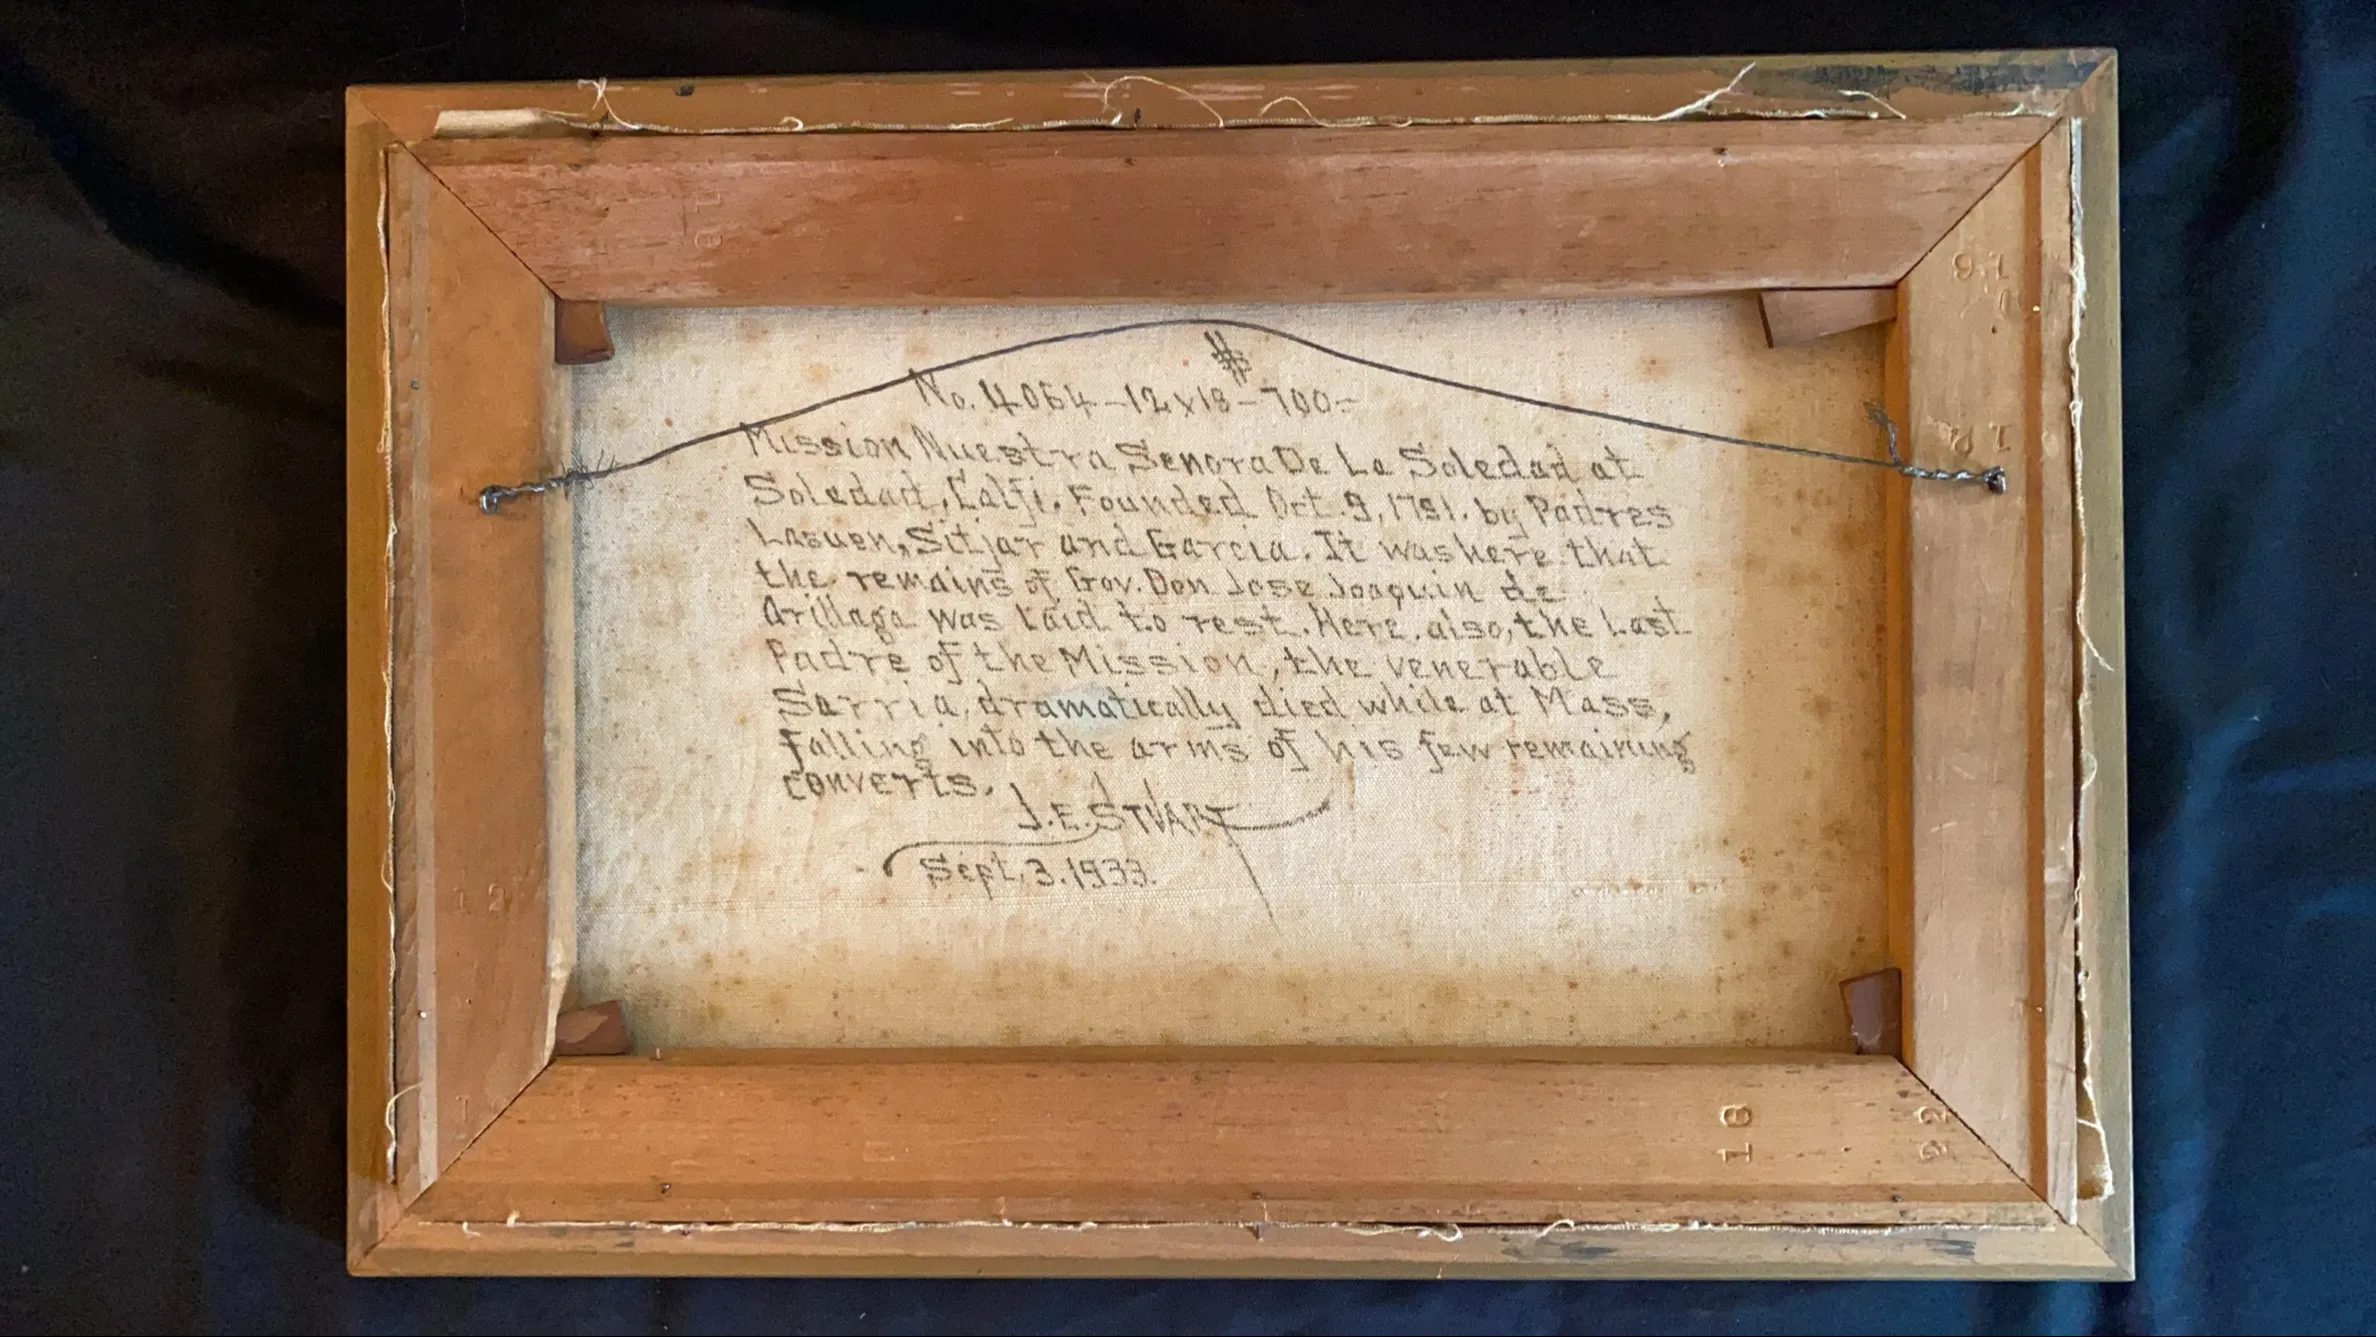 #
No. 4064-12x18-700-
Mission Nuestra Senora De La Soledad at
Soledad, Calfi. Founded Oct. 9, 1791. by Padres
Lasuen, Sitjar and Garcia. It was here that
the remains of Gov. Don Jose Joaquin de
Arillaga was laid to rest. Here, also, the Last
Padre of the Mission, the venerable
Sarria, dramatically died while at Mass,
falling into the arms of his few remaining
converts.
J.E. STUART
Sept. 3. 1933.
12
18